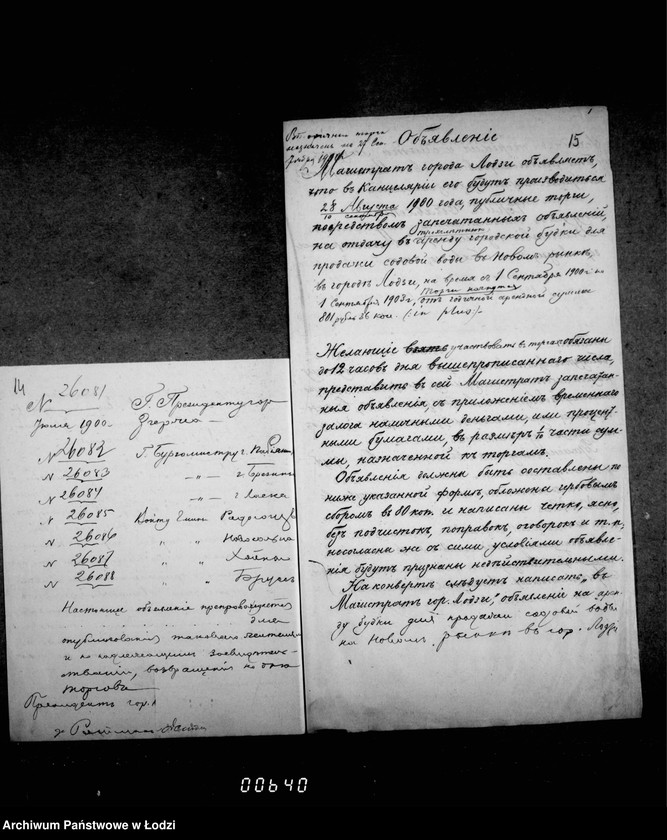 14
N 26081
Іюля 1900
Г. Президенту гор.
Згержа
N 26082 Г. Бургомистру г.
N 26083 —„— г. Брезин
N 26084 —„— г.
N 26085 Войту Гмины Радогощъ
N 26086 „ „ Новосольна
N 26087 „ „ Хойны
N 26088 „ „ Бружица
Настоящее объявленіе препровождается
для
опубликованія
и по надлежащемъ засвидѣтель-
ствованіи, возвращенія ко дню
торговъ
Президентъ гор.
15
торги
назначены на 27 Сен
Объявленіе
Магистратъ города Лодзи объявляетъ,
что въ Канцеляріи его будутъ производиться
28 Августа 1900 года, публичные торги,
посредствомъ запечатанныхъ объявленій,
на отдачу въ трехлѣтнюю аренду городской будки для
продажи содовой воды въ Новомъ рынкѣ,
въ городѣ Лодзи, на время съ 1 Сентября 1900 г. по
1 Сентября 1903 г., Торги начнутся отъ годичной арендной суммы
801 рубля 36 коп. (:in plus:).
Желающіе взять участвовать въ торгахъ обязаны
до 12 часовъ дня вышепрописаннаго числа,
представить въ сей Магистратъ запечатан-
ныя объявленія, съ приложеніемъ временнаго
залога наличными деньгами, или процент-
ными бумагами, въ размѣрѣ 1/10 части сум-
мы, назначенной къ торгамъ.
Объявленія должны быть составлены по
ниже указанной формѣ, обложены гербовымъ
сборомъ въ 80 коп. и написаны четко, ясно,
безъ подчистокъ, поправокъ, оговорокъ и т. п.,
несогласныя же съ сими условіями объявле-
нія будутъ признаны недѣйствительными.
На конвертѣ слѣдуетъ написать „въ
Магистратъ гор. Лодзи," объявленіе на арен-
ду будки для продажи содовой воды
на Новомъ рынкѣ въ гор. Лодзи
00640
Archiwum Państwowe w Łodzi